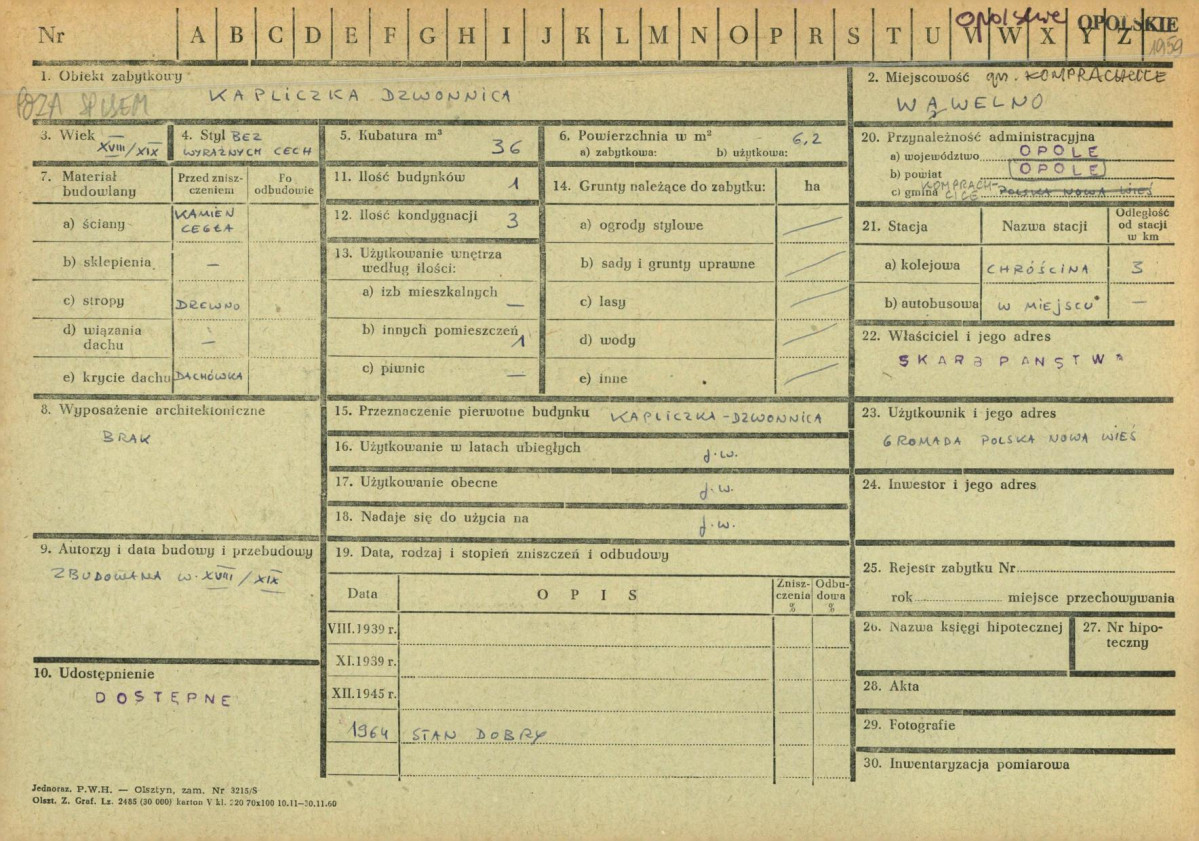 opolskie OPOLSKIE
Nr A B C D E F G H I J K L M N O P R S T U V W X Y Z
1959
1. Obiekt zabytkowy
POZA SPISEM
KAPLICZKA DZWONNICA
2. Miejscowość gm. KOMPRACHCICE
WĄWELNO
3. Wiek XVIII/XIX
4. Styl BEZ
WYRAŹNYCH CECH
5. Kubatura m³
36
6. Powierzchnia w m²
6,2
a) zabytkowa: b) użytkowa:
20. Przynależność administracyjna
a) województwo OPOLE
b) powiat OPOLE
c) gmina KOMPRACH-
CICE POLSKA NOWA WIEŚ
7. Materiał
budowlany
Przed znisz-
czeniem
Po
odbudowie
a) ściany KAMIEŃ
CEGŁA
b) sklepienia —
c) stropy DREWNO
d) wiązania
dachu —
e) krycie dachu DACHÓWKA
11. Ilość budynków 1
12. Ilość kondygnacji 3
13. Użytkowanie wnętrza
według ilości:
a) izb mieszkalnych —
b) innych pomieszczeń 1
c) piwnic —
14. Grunty należące do zabytku: ha
a) ogrody stylowe
b) sady i grunty uprawne
c) lasy
d) wody
e) inne
21. Stacja
Nazwa stacji
Odległość
od stacji
w km
a) kolejowa CHRÓŚCINA 3
b) autobusowa W MIEJSCU —
22. Właściciel i jego adres
SKARB PAŃSTWA
8. Wyposażenie architektoniczne
BRAK
15. Przeznaczenie pierwotne budynku KAPLICZKA-DZWONNICA
16. Użytkowanie w latach ubiegłych j.w.
17. Użytkowanie obecne j.w.
18. Nadaje się do użycia na j.w.
23. Użytkownik i jego adres
GROMADA POLSKA NOWA WIEŚ
24. Inwestor i jego adres
9. Autorzy i data budowy i przebudowy
ZBUDOWANA W XVIII/XIX
10. Udostępnienie
DOSTĘPNE
19. Data, rodzaj i stopień zniszczeń i odbudowy
Data OPIS
Znisz-
czenia
%
Odbu-
dowa
%
VIII.1939 r.
XI.1939 r.
XII.1945 r.
1964 STAN DOBRY
25. Rejestr zabytku Nr
rok miejsce przechowywania
26. Nazwa księgi hipotecznej
27. Nr hipo-
teczny
28. Akta
29. Fotografie
30. Inwentaryzacja pomiarowa
Jednoraz. P.W.H. — Olsztyn, zam. Nr 3215/S
Olszt. Z. Graf. Lz. 2485 (30 000) karton V kl. 220 70x100 10.11—30.11.60